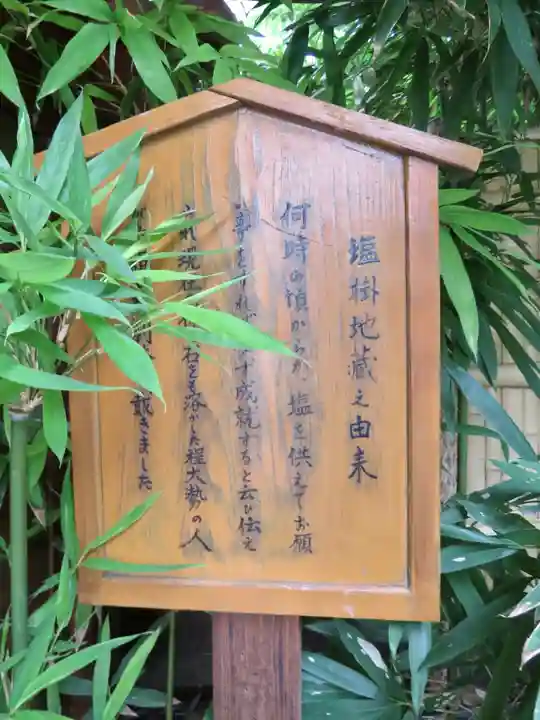 塩掛地蔵之由来
何時の頃からか、塩を供えてお願
事をすれば 成就すると云ひ伝え
られ現在 石を落かた程大勢の人
戴きました